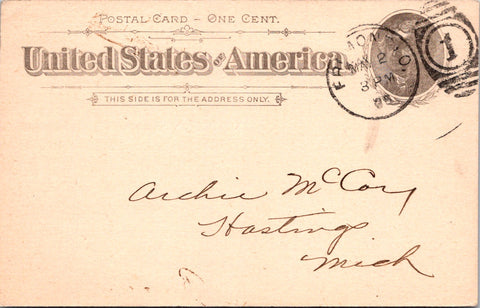 POSTAL CARD - ONE CENT.
United States of America
THIS SIDE IS FOR THE ADDRESS ONLY.
FREMONT
O
2
3 PM
1
Archie McCoy
Hastings
Mich